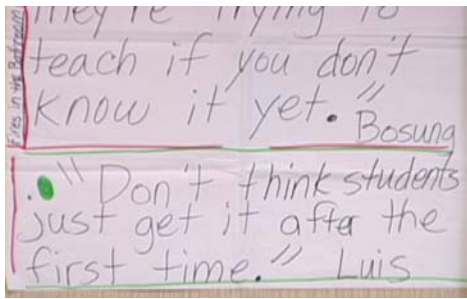 they're trying to
teach if you don't
know it yet." Bosung
Fires in the Bathroom
"Don't think students
just get it after the
first time." Luis